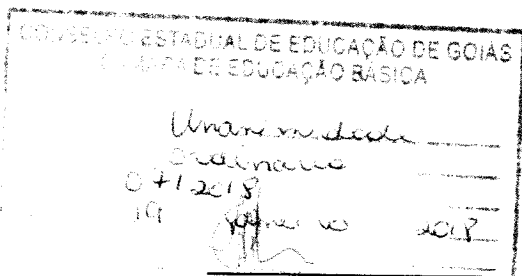 CONSELHO ESTADUAL DE EDUCAÇÃO DE GOIÁS
CÂMARA DE EDUCAÇÃO BÁSICA
Unanimidade
ordinária
2018
19 2018